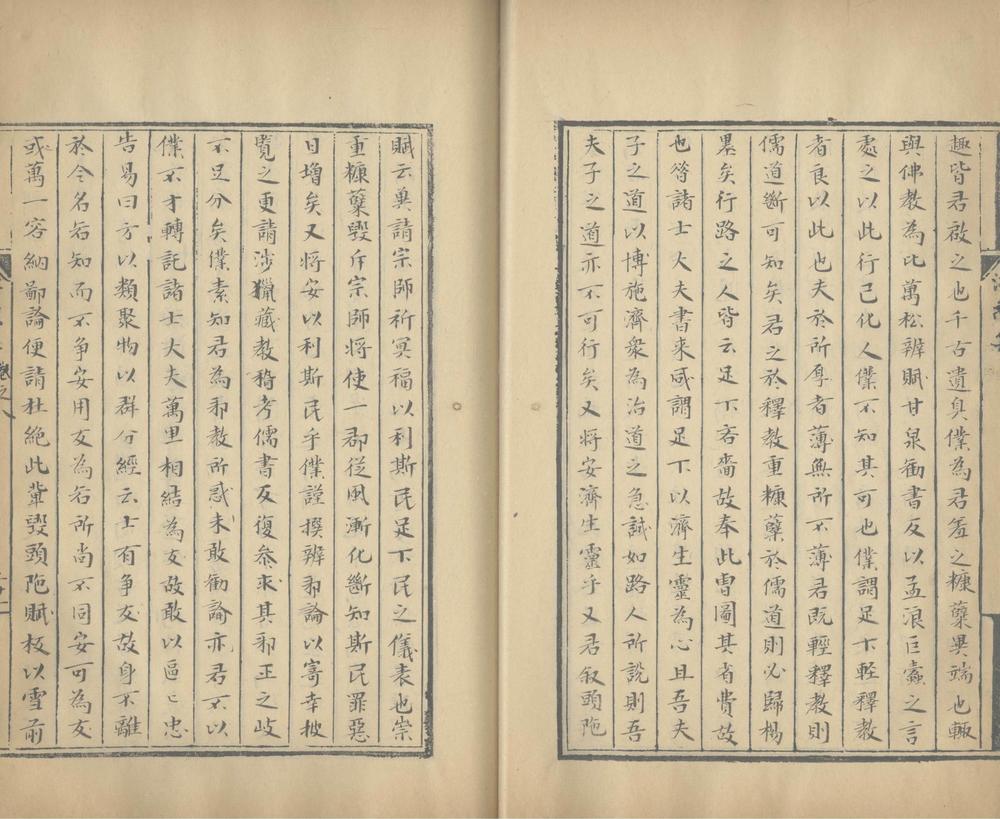 趣皆君啟之也千古遺臭僕為君羞之糠糵異端也輒
與佛教為比萬松辨賦甘泉勸書反以孟浪巨蠹之言
處之以此行己化人僕不知其可也僕謂足下輕釋教
者良以此也夫於所厚者薄無所不薄君既輕釋教則
儒道斷可知矣君之於釋教重糠糵於儒道則必歸楊
墨矣行路之人皆云足下吝嗇故奉此曺圖其省費故
也昝諸士大夫書来咸謂足下以濟生靈為心且吾夫
子之道以博施濟衆為治道之急誠如路人所說則吾
夫子之道亦不可行矣又將安濟生靈乎又君叙頭陁
賦云冀請宗師祈冥福以利斯民足下民之儀表也崇
重糠糵毀斥宗師將使一郡從風漸化斷知斯民罪惡
日增矣又將安以利斯民乎僕謹撰辨邪論以寄幸披
覽之更請涉獵藏教稽考儒書反復叅求其邪正之岐
不足分矣僕素知君為邪教所惑未敢勸諭亦君不以
僕不才轉託諸士大夫萬里相結為友故敢以區〻忠
告易曰方以類聚物以群分經云士有争友故身不離
於令名若知而不争安用友為若所尚不同安可為友
或萬一容納鄙論便請杜絶此輩毀頭陁賦板以雪前
卷之八